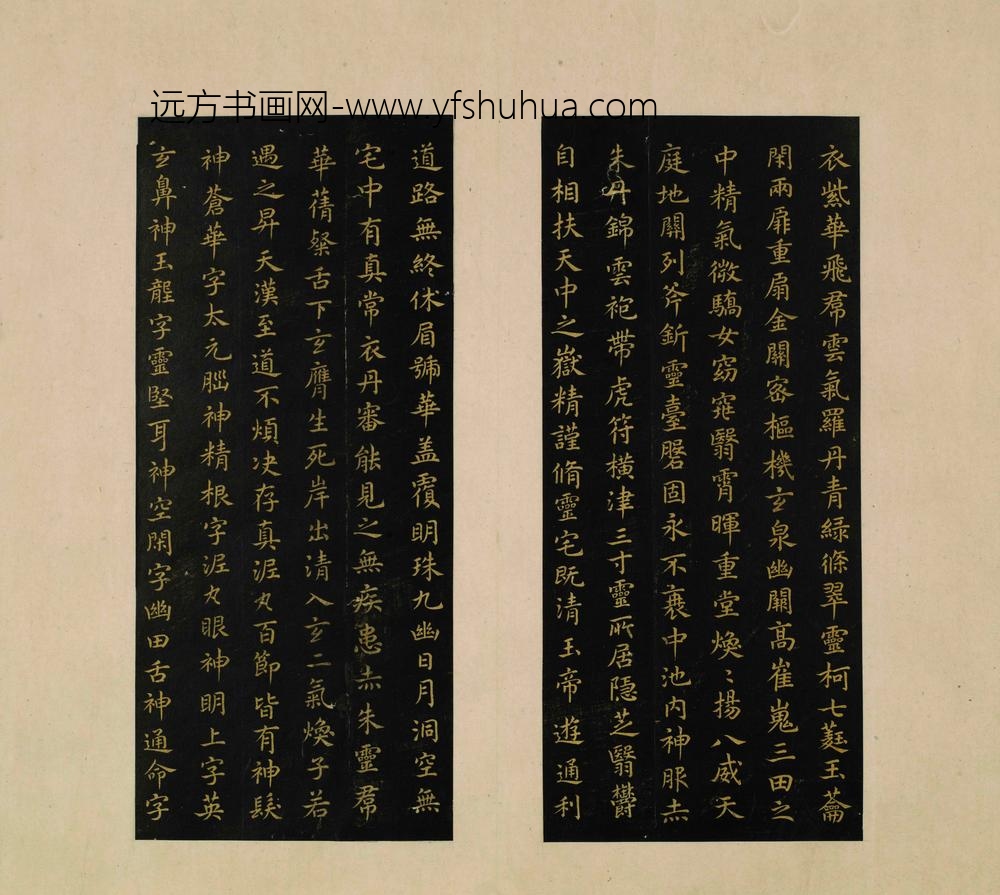 远方书画网-www.yfshuhua.com
衣紫華飛帬雲氣羅丹青緑條翠靈柯七蕤玉蘥
閑兩扉重扇金關密樞機玄泉幽關髙崔嵬三田之
中精氣微驕女窈窕翳霄暉重堂煥〻揚八威天
庭地關列斧釿靈臺磐固永不衰中池内神服赤
朱丹錦雲袍帶虎符横津三寸靈所居隱芝翳欝
自相扶天中之嶽精謹脩靈宅既清玉帝遊通利
道路無終休眉號華盖覆明珠九幽日月洞空無
宅中有真常衣丹審能見之無疾患赤朱靈帬
華蒨粲舌下玄膺生死岸出清入玄二氣煥子若
遇之昇天漢至道不煩决存真泥丸百節皆有神髮
神蒼華字太元腦神精根字泥丸眼神明上字英
玄鼻神玉壠字靈堅耳神空閑字幽田舌神通命字